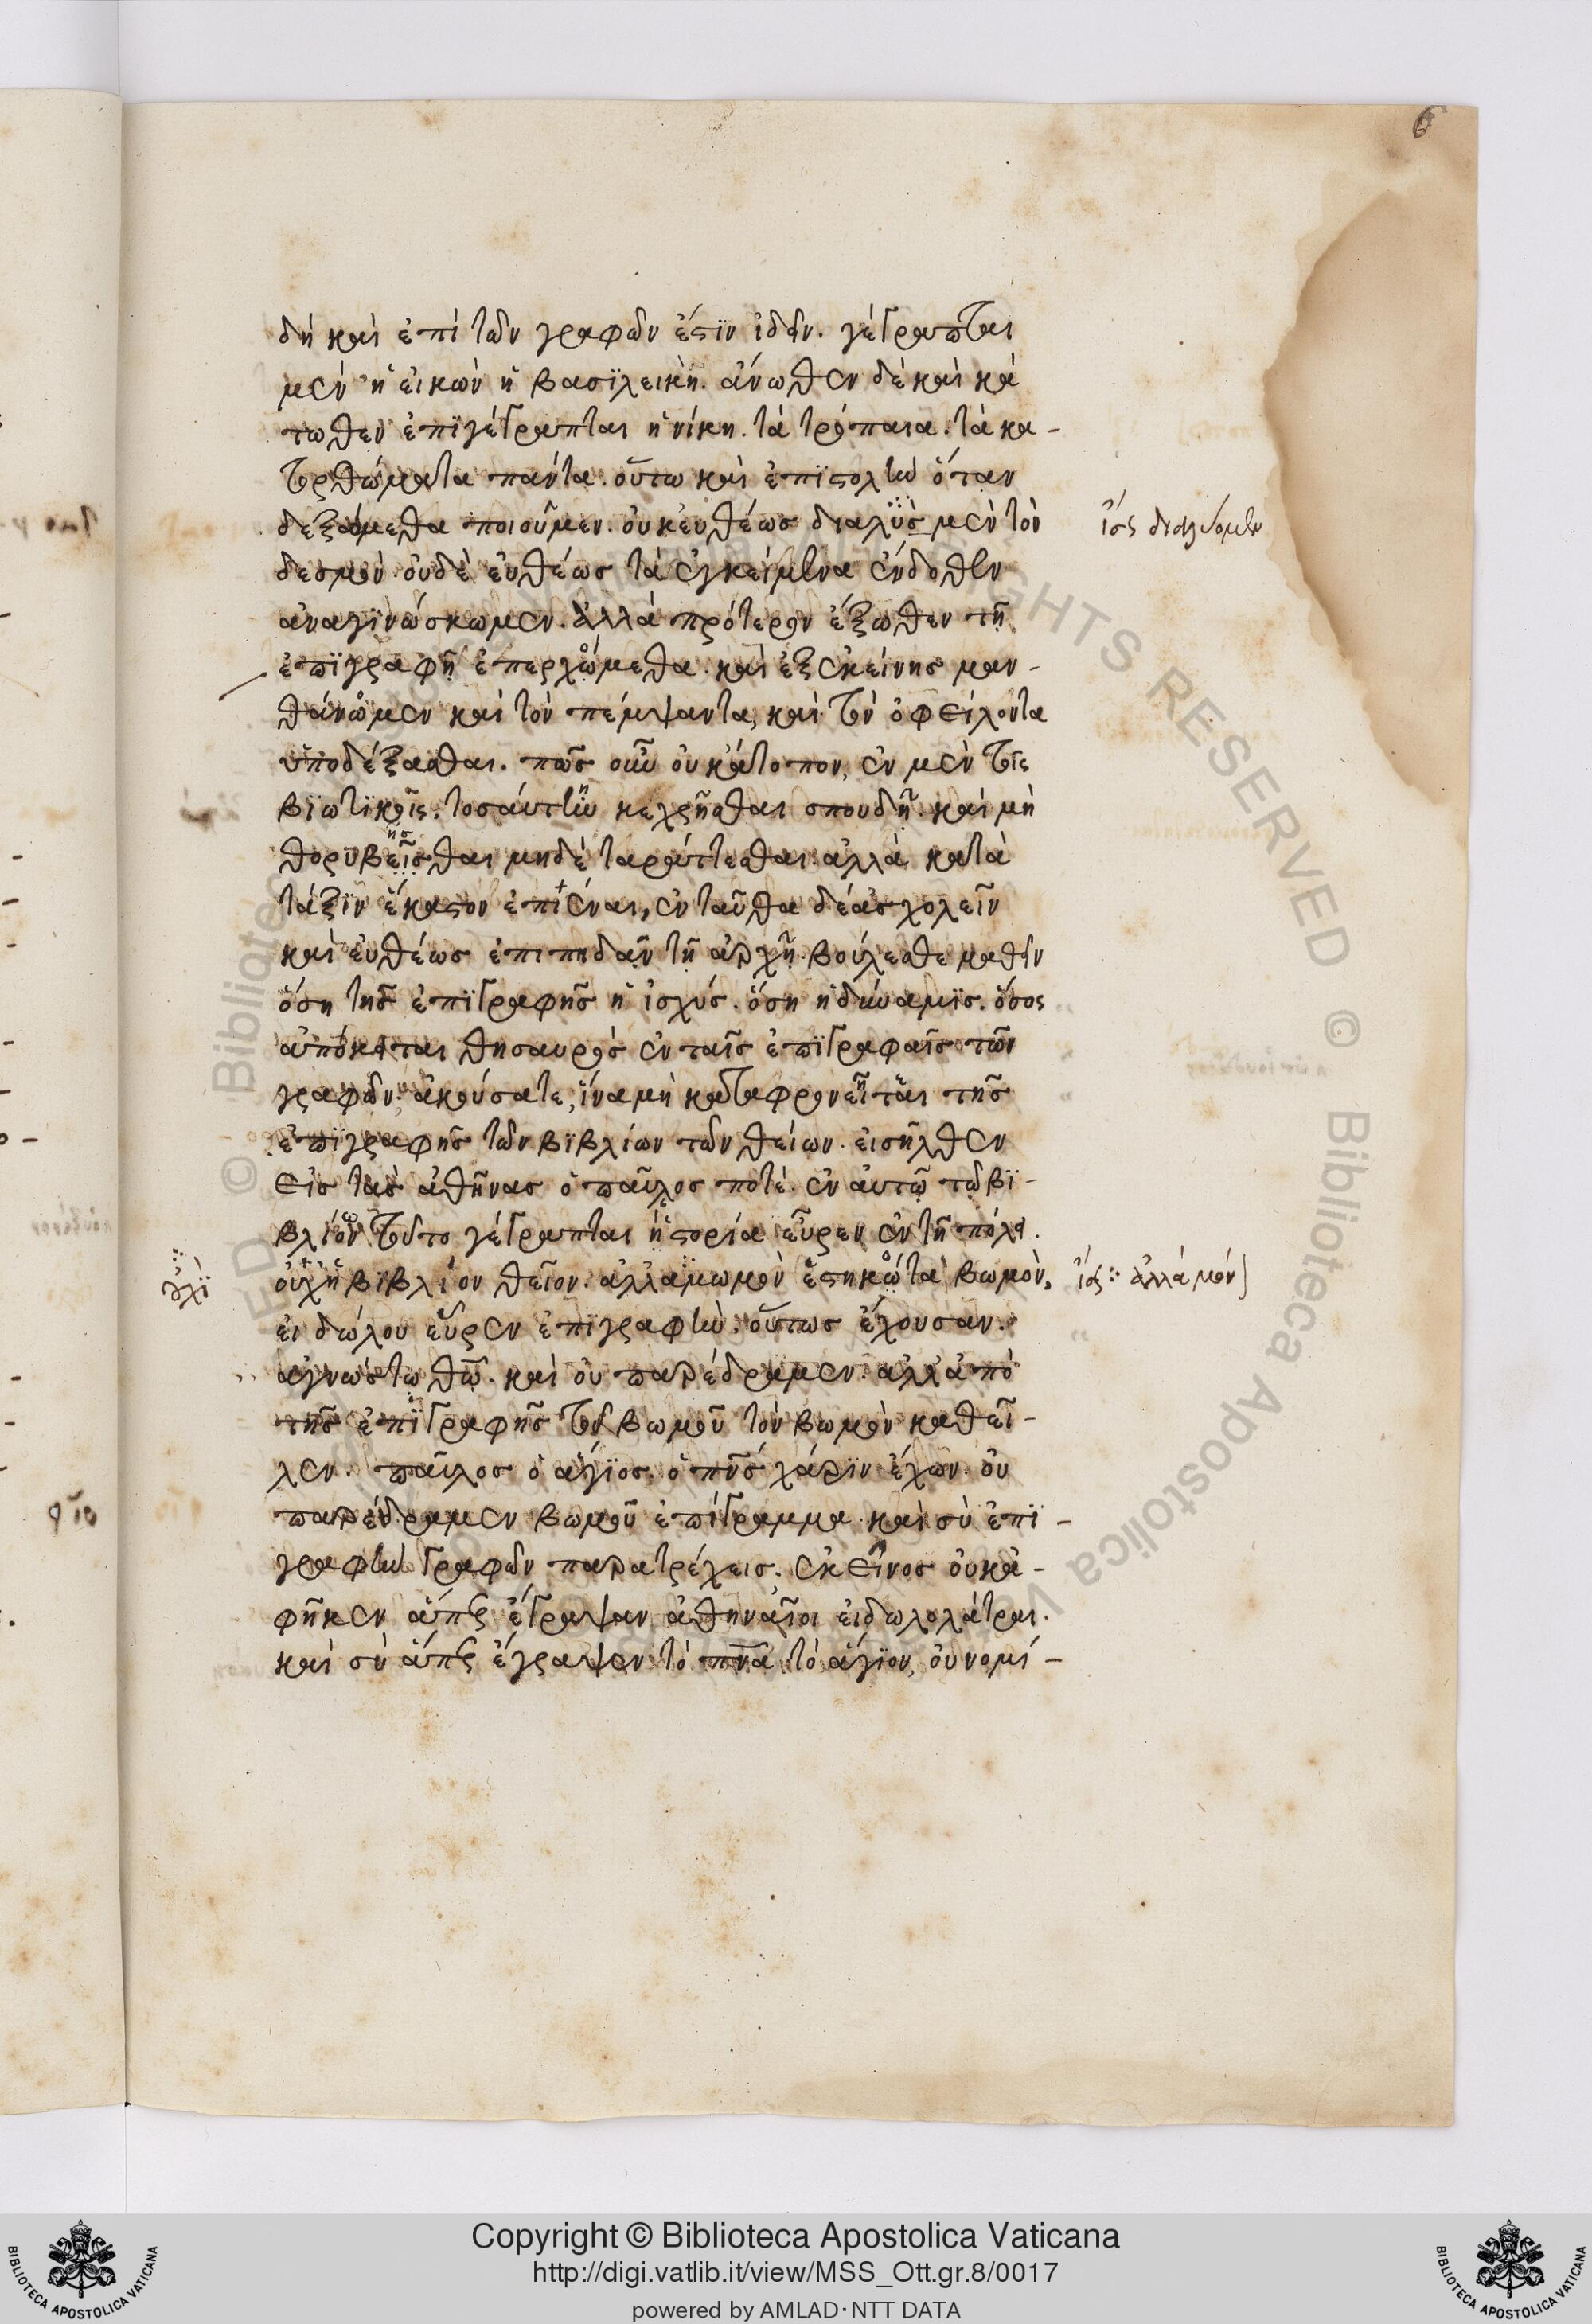 6
δὴ καὶ ἐπὶ τῶν γραφῶν ἔστϊν ἰδεῖν. γέγραπται
μὲν ἡ εἰκὼν ἡ βασϊλεικὴ. ἄνωθεν δὲ καὶ κά
τωθεν ἐπϊγέγραπται ἡ νίκη. τὰ τρόπαια. τὰ κα-
τορθώματα πάντα. οὕτω καὶ ἐπϊστολὴν ὅταν
δεξώμεθα ποιοῦμεν. οὐκ εὐθέως διαλϋὲς μὲν τὸν
ἴσως διαλύομεν
δεσμὸν οὐδὲ εὐθέως τὰ ἐγκείμενα ἔνδοθεν
ἀναγϊνώσκωμεν. ἀλλὰ πρότερον ἔξωθεν τῇ
ἐπϊγραφῇ ἐπερχώμεθα. καὶ ἐξ ἐκείνης μαν-
θάνωμεν καὶ τὸν πέμψαντα, καὶ τὸν ὀφείλοντα
ὑποδέξασθαι. πῶς οὖν οὐκ ἄτοπον, ἐν μὲν τοῖς
βϊωτϊκοῖς. τοσαύτην κεχρῆσθαι σπουδῇ. καὶ μὴ
θορϋβεῖσθαι μηδὲ ταράττεσθαι. ἀλλὰ κατὰ
τάξϊν ἕκαστον ἐπιέναι, ἐνταῦθα δὲ ἀσχολεῖν
καὶ εὐθέως ἐπιπηδᾷν τῇ ἀρχῇ. βούλεσθε μαθεῖν
ὅση τῆς ἐπϊγραφῆς ἡ ἰσχύς. ὅση ἡ δύναμϊς. ὅσος
ἀπόκειται θησαυρὸς ἐν ταῖς ἐπϊγραφαῖς τῶν
γραφῶν. ἀκούσατε, ἵνα μὴ καταφρονεῖται τῆς
ἐπϊγραφῆς τῶν βϊβλίων τῶν θείων. εἰσῆλθεν
εἰς τὰς ἀθήνας ὁ παῦλος ποτὲ. ἐν αὐτῷ τῷ βϊ-
βλίον τοῦτο γέγραπται ἡ ἱστορία εὗρεν ἐν τῇ πόλει.
οὐχὶ
οὐχὴ βϊβλίον θεῖον. ἀλλαμωμὸν ἑστηκῶτα βωμὸν,
ἴσως ἀλλὰ μόν
εἰδώλου εὗρεν ἐπϊγραφὴν. οὕτως ἔχουσαν.
ἀγνώστω θῶ. καὶ οὐ παρέδραμεν. ἀλλ ἀπὸ
τῆς ἐπϊγραφῆς τοῦ βωμοῦ τὸν βωμὸν καθεῖ-
λεν. παῦλος ὁ ἅγϊος. ὁ πνς χάρϊν ἔχων. οὐ
παρέδραμεν βωμοῦ ἐπίγραμμα. καὶ σὺ ἐπϊ-
γραφὴν γραφῶν παρατρέχεις. ἐκεῖνος οὐκ ἀ-
φῆκεν ἅπερ ἔγραψαν ἀθηναῖοι εἰδωλολάτραι.
καὶ σὺ ἅπερ ἔγραψεν τὸ πνα τὸ ἅγϊον, οὐ νομί-
Copyright © Biblioteca Apostolica Vaticana
http://digi.vatlib.it/view/MSS_Ott.gr.8/0017
powered by AMLAD·NTT DATA